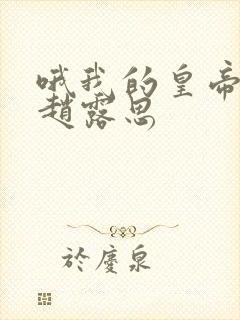 哦我的皇帝
趙露思
於慶泉